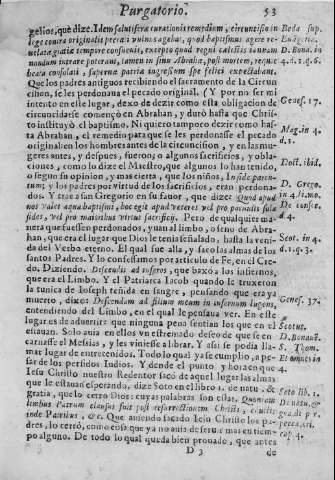 Purgatorio. 53
gelios, que dize. Idem salutifera curationis remedium, circuncisio in
lege contra originalis peccati vulnus agebat, quod baptismus agere re-
uelata gratiæ tempore consueuit, excepto quod regni cælestis ianuam
nondum intrare poterant, tamen in sinu Abrahæ, post mortem, requie
beata consolati, supernæ patriæ ingressum spe felici expectabant.
Que los padres antiguos recibiendo el Sacramento de la Circun
cision, se les perdonaua el pecado original. (Y por no ser mi
intento en este lugar, dexo de dezir como esta obligacion de
circuncidarse començò en Abrahan, y durò hasta que Chris-
to instituyò el baptismo. Ni quiero tampoco dezir como has-
ta Abrahan, el remedio para que se les perdonasse el pecado
original: en los hombres antes de la circuncision, y en las mu-
geres antes, y despues, fueron, o algunos sacrificios, y obla-
ciones, como lo dize el Maestro, que algunos lo han tenido,
o segun su opinion, y mas cierta, que los niños, In fide paren-
tum; y los padres por virtud de los sacrificios, eran perdona-
dos. Y trae a san Gregorio en su fauor, que dize: Quod apud
nos valet aqua baptismi, hoc egit apud veteres vel pro paruulis sola
fides, vel pro maioribus virtus sacrificij. Pero de qualquier ma-
nera que fuessen perdonados, yuan al limbo, o seno de Abra-
han, que era el lugar que Dios le tenia señalado, hasta la veni-
da del Verbo eterno. El qual fue alla, y saco las almas de los
santos Padres. Y lo confessamos por articulo de Fe, en el Cre-
do, Diziendo. Descendit ad inferos, que baxò a los infiernos,
que era el Limbo. Y el Patriarca Iacob quando le truxeron
la tunica de Ioseph teñida en sangre, pensando que era ya
muerto, dixo: Descendam ad filium meum in infernum lugens,
entendiendo del Limbo, en el qual le pensaua ver. En este
lugar es de aduertir que ninguna pena sentian los que en el
estauan. Solo auia en ellos vn estremado desseo de que se en-
carnasse el Messias, y les viniesse a librar. Y assi se podia lla-
mar lugar de entretenidos. Todo lo qual ya se cumplio, a pe-
sar de los perfidos Iudios. Y dende el punto, y hora en que
Iesu Christo nuestro Redentor sacò de aquel lugar las almas
que le estauan esperando, dize Soto en el libro 1. de natu, &
gratia, que lo cerro Dios: cuyas palabras son estas. Quoniam
limbus Patrum clausus fuit post resurrectionem Christi, exultis
inde Patribus, &c. Que auiendo sacado Iesu Christo los pa-
dres, lo cerrò, como cosa que ya no auia de seruir mas en tiem-
po alguno. De todo lo qual queda bien prouado, que antes
D 3 de
Beda sup.
Euangelia.
D. Bona. in
Genes. 17.
Mag. in 4.
d. 1.
Dost. ibid.
D. Grego.
in 4. d. 1. mo.
De conse.
d. 4.
Scot. in 4.
d. 1. q. 3.
Genes. 37.
Scotus.
D. Bonau.
S. Thom.
Et omnes in
4.
Soto lib. 1.
De natu, &
cap. 4.